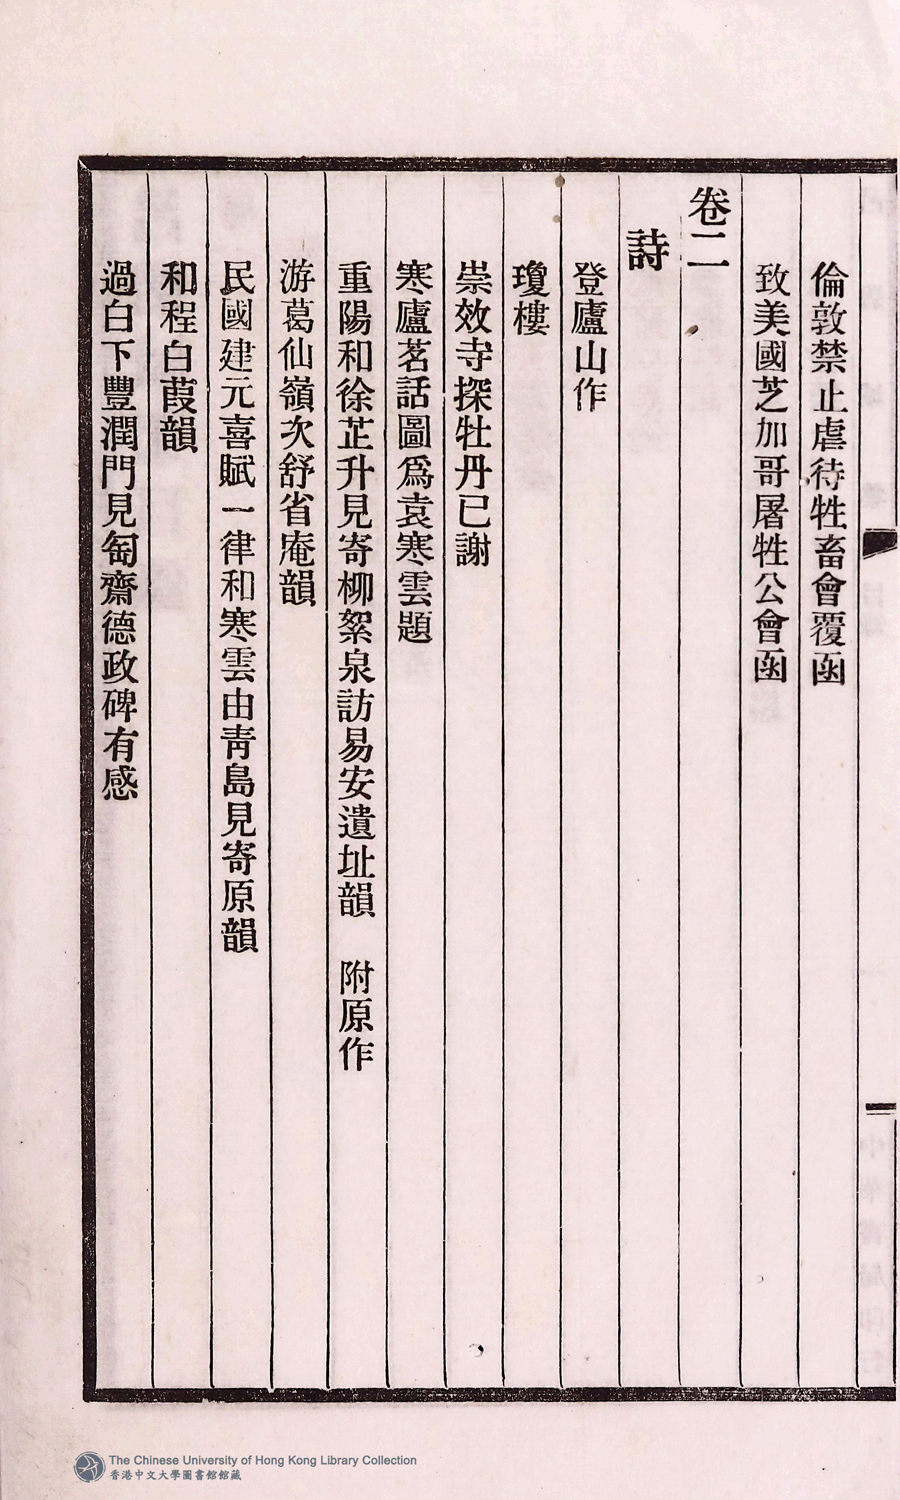 倫敦禁止虐待牲畜會覆函
致美國芝加哥屠牲公會函
卷二
詩
登廬山作
瓊樓
崇效寺探牡丹已謝
寒廬茗話圖爲袁寒雲題
重陽和徐芷升見寄柳絮泉訪易安遺址韻　附原作
游葛仙嶺次舒省庵韻
民國建元喜賦一律和寒雲由靑島見寄原韻
和程白葭韻
過白下豐潤門見匋齋德政碑有感
The Chinese University of Hong Kong Library Collection
香港中文大學圖書館館藏